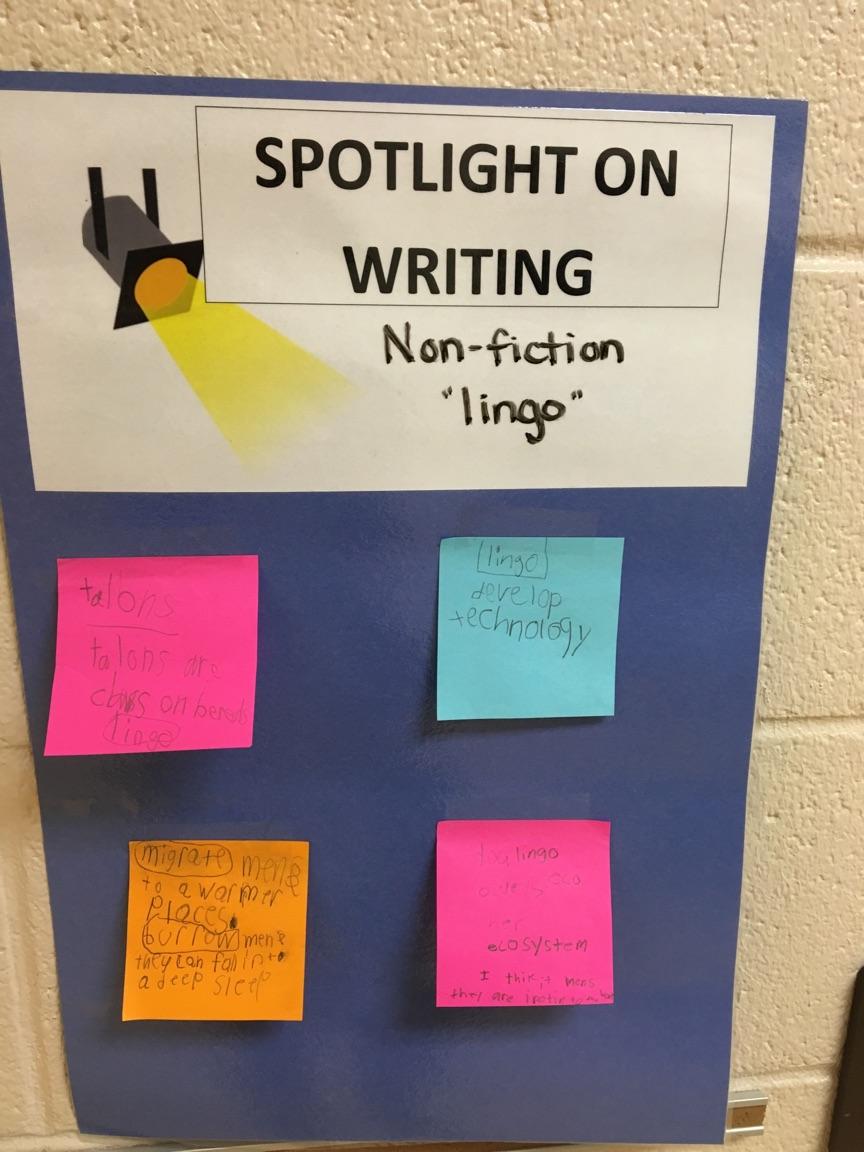 SPOTLIGHT ON
WRITING
Non-fiction
"lingo"
talons
talons are
claws on bereds
lingo
lingo
develop
technology
migrate mens
to a warmer
places.
burrow mens
they can fall into
a deep sleep
lingo
eco
ecosystem
I think it mens
they are